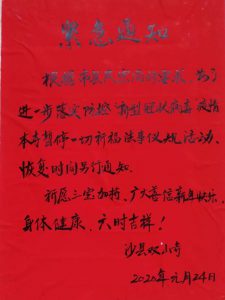 紧急通知
根据市民民宗局的要求,为了
进一步落实防控"新型冠状病毒"疫情
本寺暂停一切祈福法事仪规活动,
恢复时间另行通知.
祈愿三宝加持、广大善信新年快乐、
身体健康、六时吉祥!
沙县双山寺
2020年元月24日